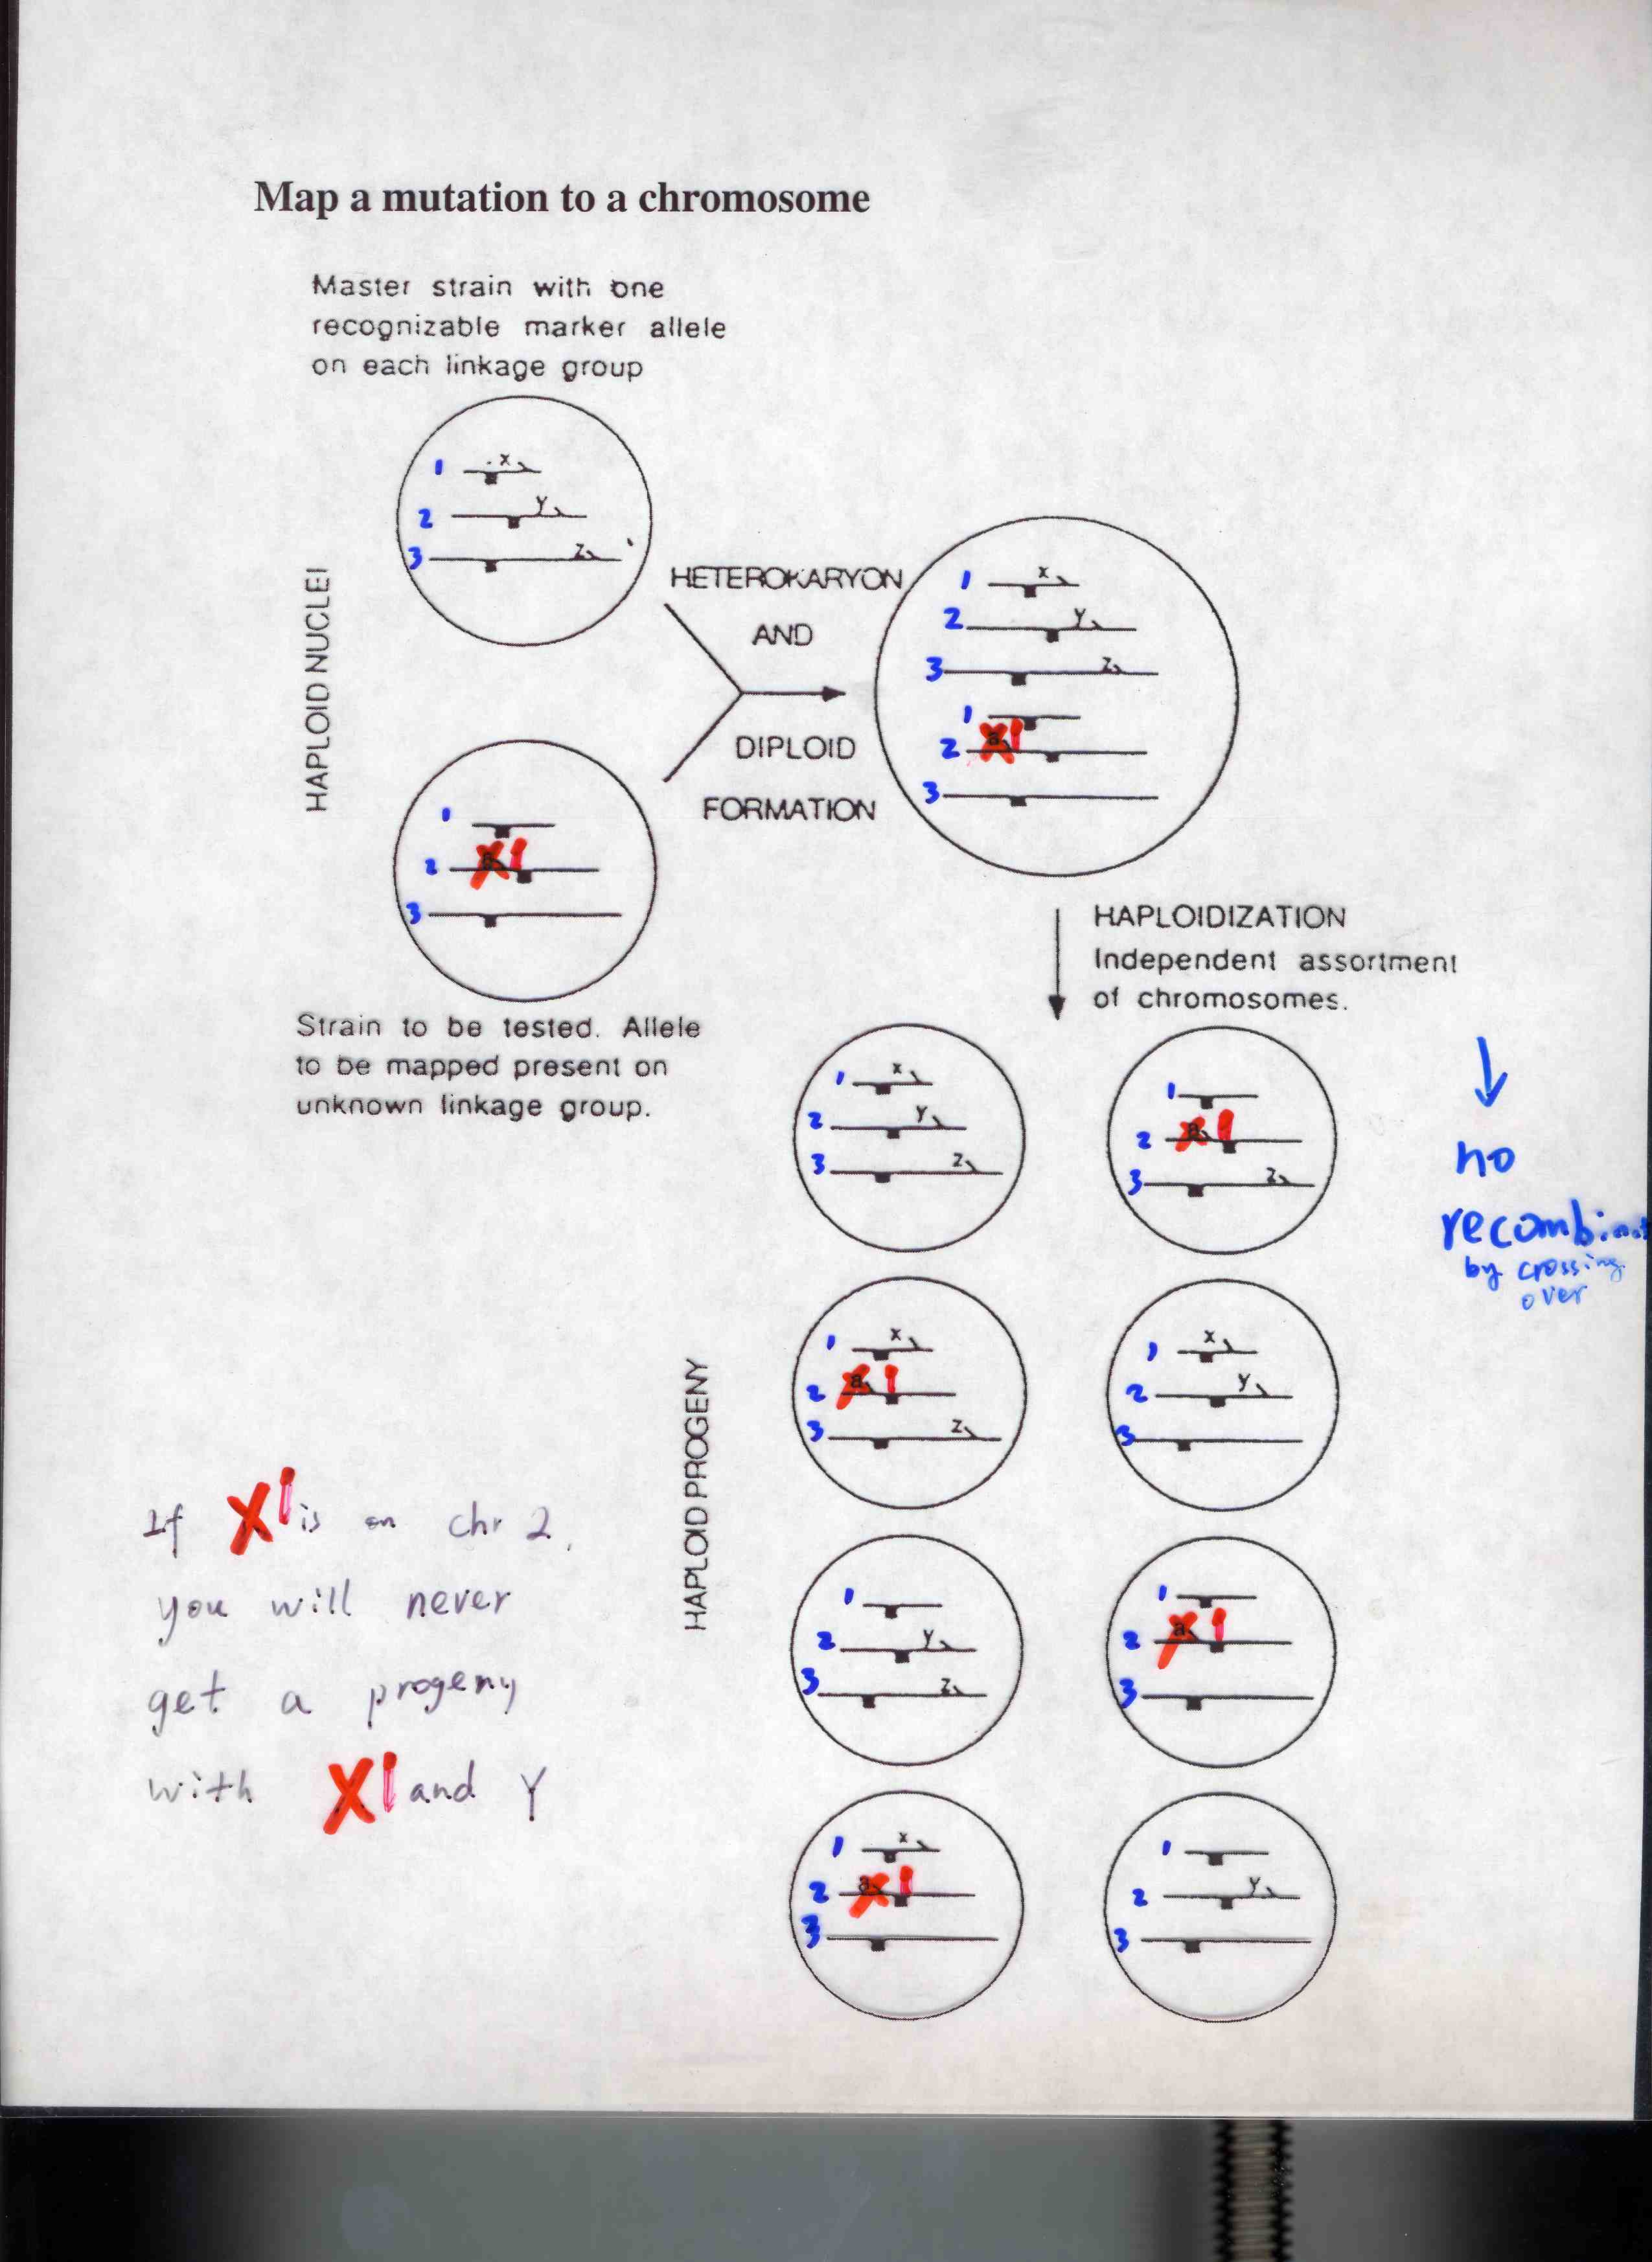 Map a mutation to a chromosome
Master strain with one
recognizable marker allele
on each linkage group
HAPLOID NUCLEI
1 x
2 y
3 z
HETEROKARYON
AND
DIPLOID
FORMATION
1 x
2 y
3 z
1
2 a X1
3
1
2 a X1
3
Strain to be tested. Allele
to be mapped present on
unknown linkage group.
HAPLOIDIZATION
Independent assortment
of chromosomes.
no
by crossing
over
HAPLOID PROGENY
1 x
2 y
3 z
1
2 a X1
3 z
1 x
2 a X1
3 z
1 x
2 y
3
1
2 y
3 z
1
2 a X1
3
1 x
2 a X1
3
1
2 y
3
If X1 is on chr 2,
you will never
get a progeny
with X1 and Y